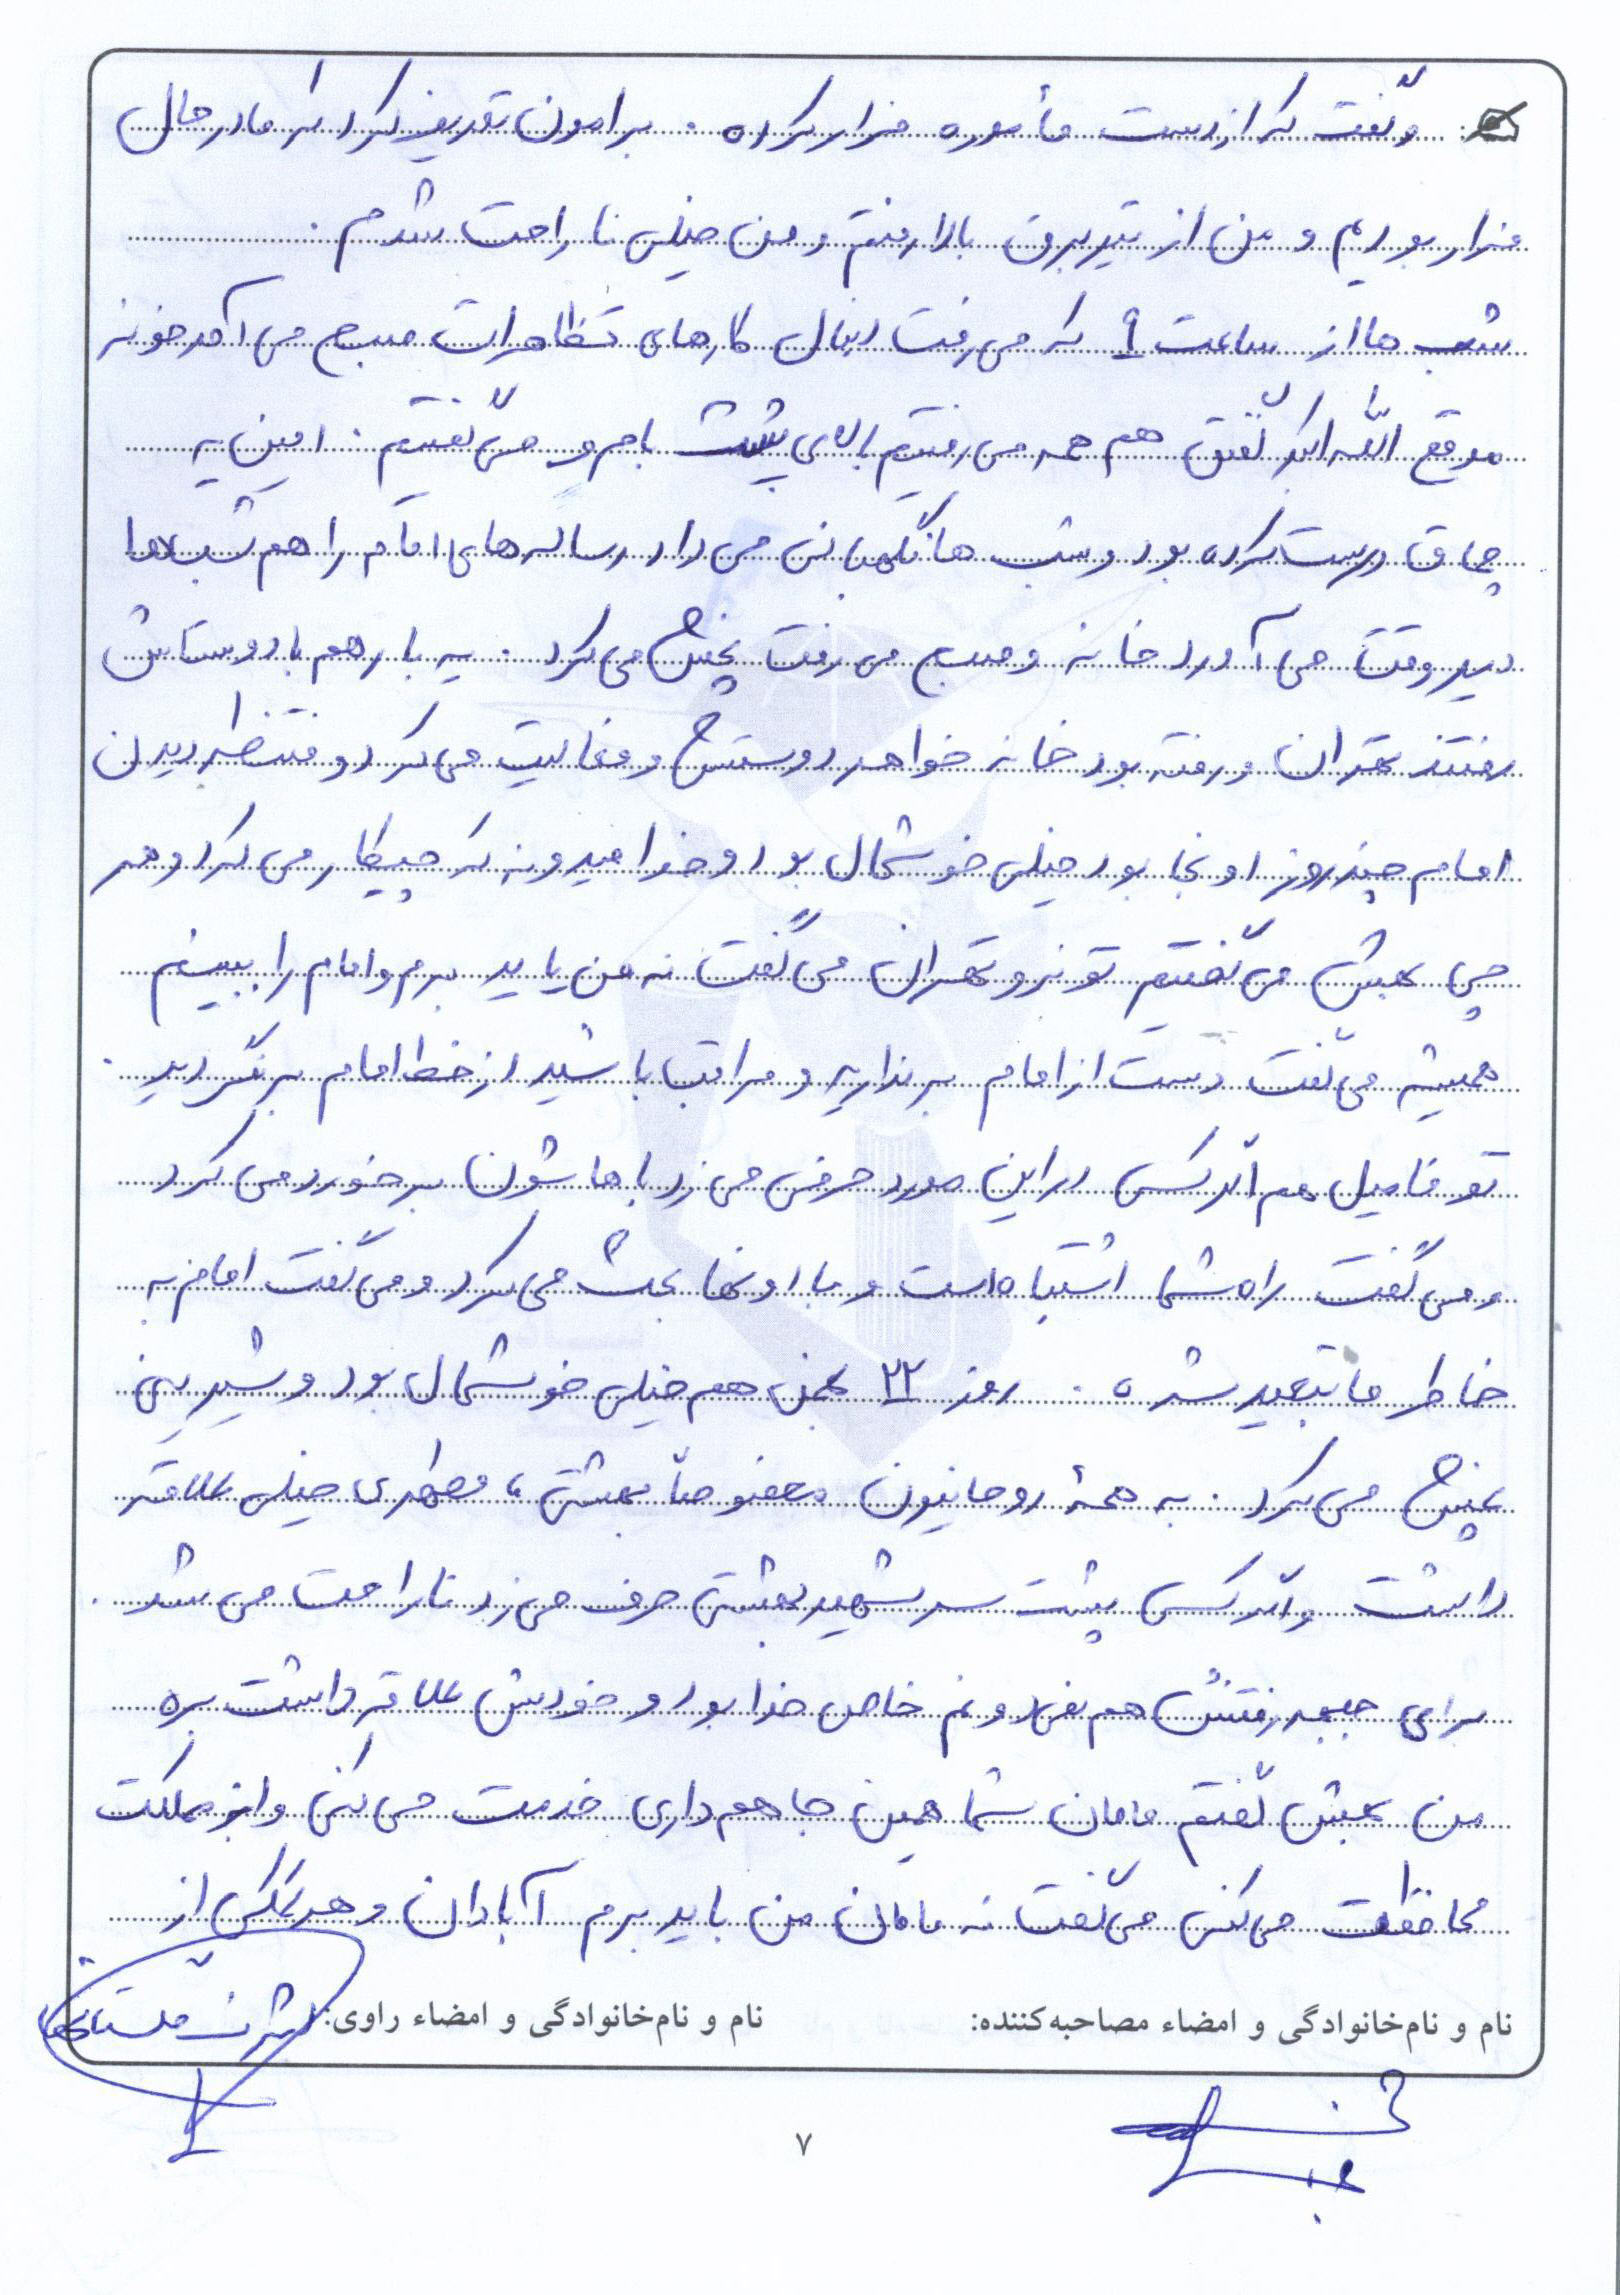 و گفت که از دست مأموره فرار کرده. برامون تعریف کرد که ما در حال
فرار بودیم و من از تیر برق بالا رفتم و من خیلی ناراحت شدم.
شب ها از ساعت ۹ که می رفت دنبال کارهای تظاهرات صبح می آمد خونه
موقع الله اکبر گفتن هم همه می رفتیم بالای پشت بام و می گفتیم. امین یه
چماق درست کرده بود و شب ها نگهبانی می داد رساله های امام را هم شب ها
دیر وقت می آورد خانه و صبح می رفت پخش می کرد. یه بار هم با دوستاش
رفتند تهران و رفته بود خانه خواهر دوستش و فعالیت می کرد و منتظر دیدن
امام چند روز اونجا بود خیلی خوشحال بود و خدا میدونه که چیکار می کرد و هر
چی بهش می گفتیم تو نرو تهران می گفت نه من باید برم و امام را ببینم
همیشه می گفت دست از امام برندارید و مراقب باشید از خط امام برنگردید.
تو فامیل هم اگر کسی در این مورد حرفی می زد باهاشون برخورد می کرد
و می گفت راه شما اشتباه است و با اونها بحث می کرد و می گفت امام به
خاطر ما تبعید شده. روز ۲۲ بهمن هم خیلی خوشحال بود و شیرینی
پخش می کرد. به همهٔ روحانیون مخصوصاً بهشتی، مطهری خیلی علاقه
داشت و اگر کسی پشت سر شهید بهشتی حرف می زد ناراحت می شد.
برای جبهه رفتنش هم نمی دونم خاص خدا بود و خودش علاقه داشت بره
من بهش گفتم مامان شما همین جا هم داری خدمت می کنی و از مملکت
محافظت می کنی می گفت نه مامان من باید برم آبادان و هر کمکی از
نام و نام‌خانوادگی و امضاء مصاحبه‌کننده: نام و نام‌خانوادگی و امضاء راوی:
۷